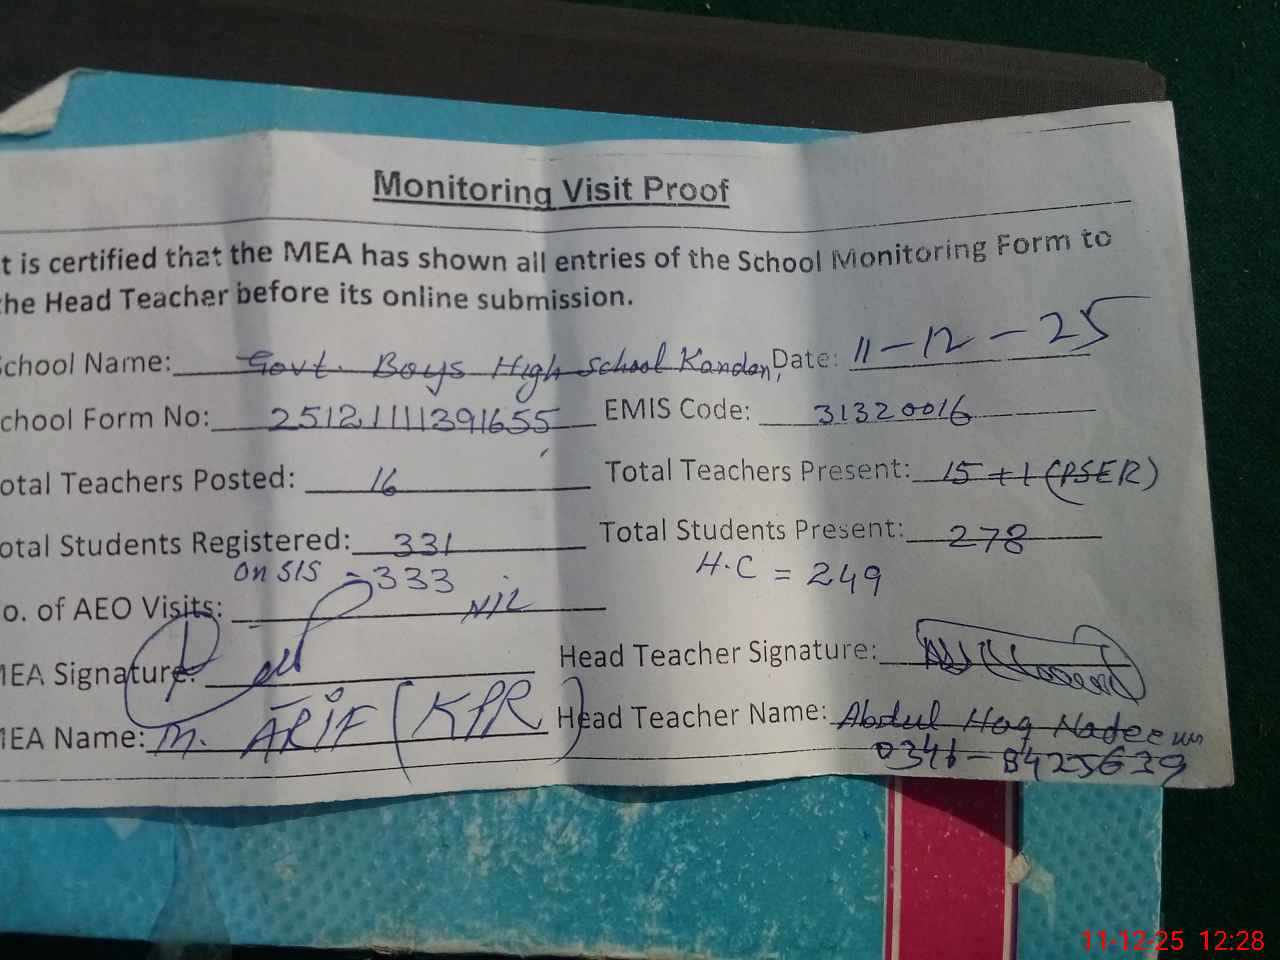 Monitoring Visit Proof
t is certified that the MEA has shown all entries of the School Monitoring Form to
he Head Teacher before its online submission.
chool Name: Govt. Boys High School Kandan, Date: 11-12-25
chool Form No: 25121111391655 EMIS Code: 31320016
otal Teachers Posted: 16 Total Teachers Present: 15+1(PSER)
otal Students Registered: 331 Total Students Present: 278
On SIS - 333 H.C = 249
o. of AEO Visits: NIL
MEA Signature: Head Teacher Signature:
MEA Name: M. ARIF (KPR) Head Teacher Name: Abdul Haq Nadeem
0346-8425639
11-12-25 12:28